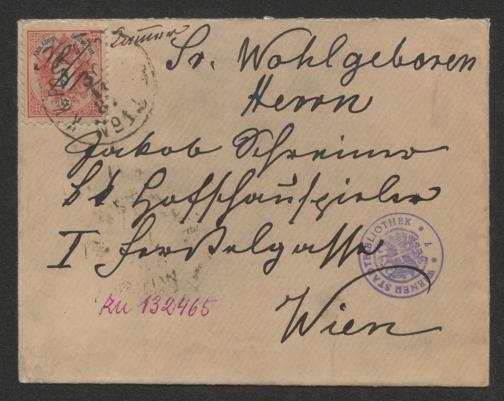 Sr. Wohlgeboren
Herrn
Jakob Schreiner
kk Hofschauspieler
I Ferstelgasse
Wien
zu 132465
WIENER STADTBIBLIOTHEK